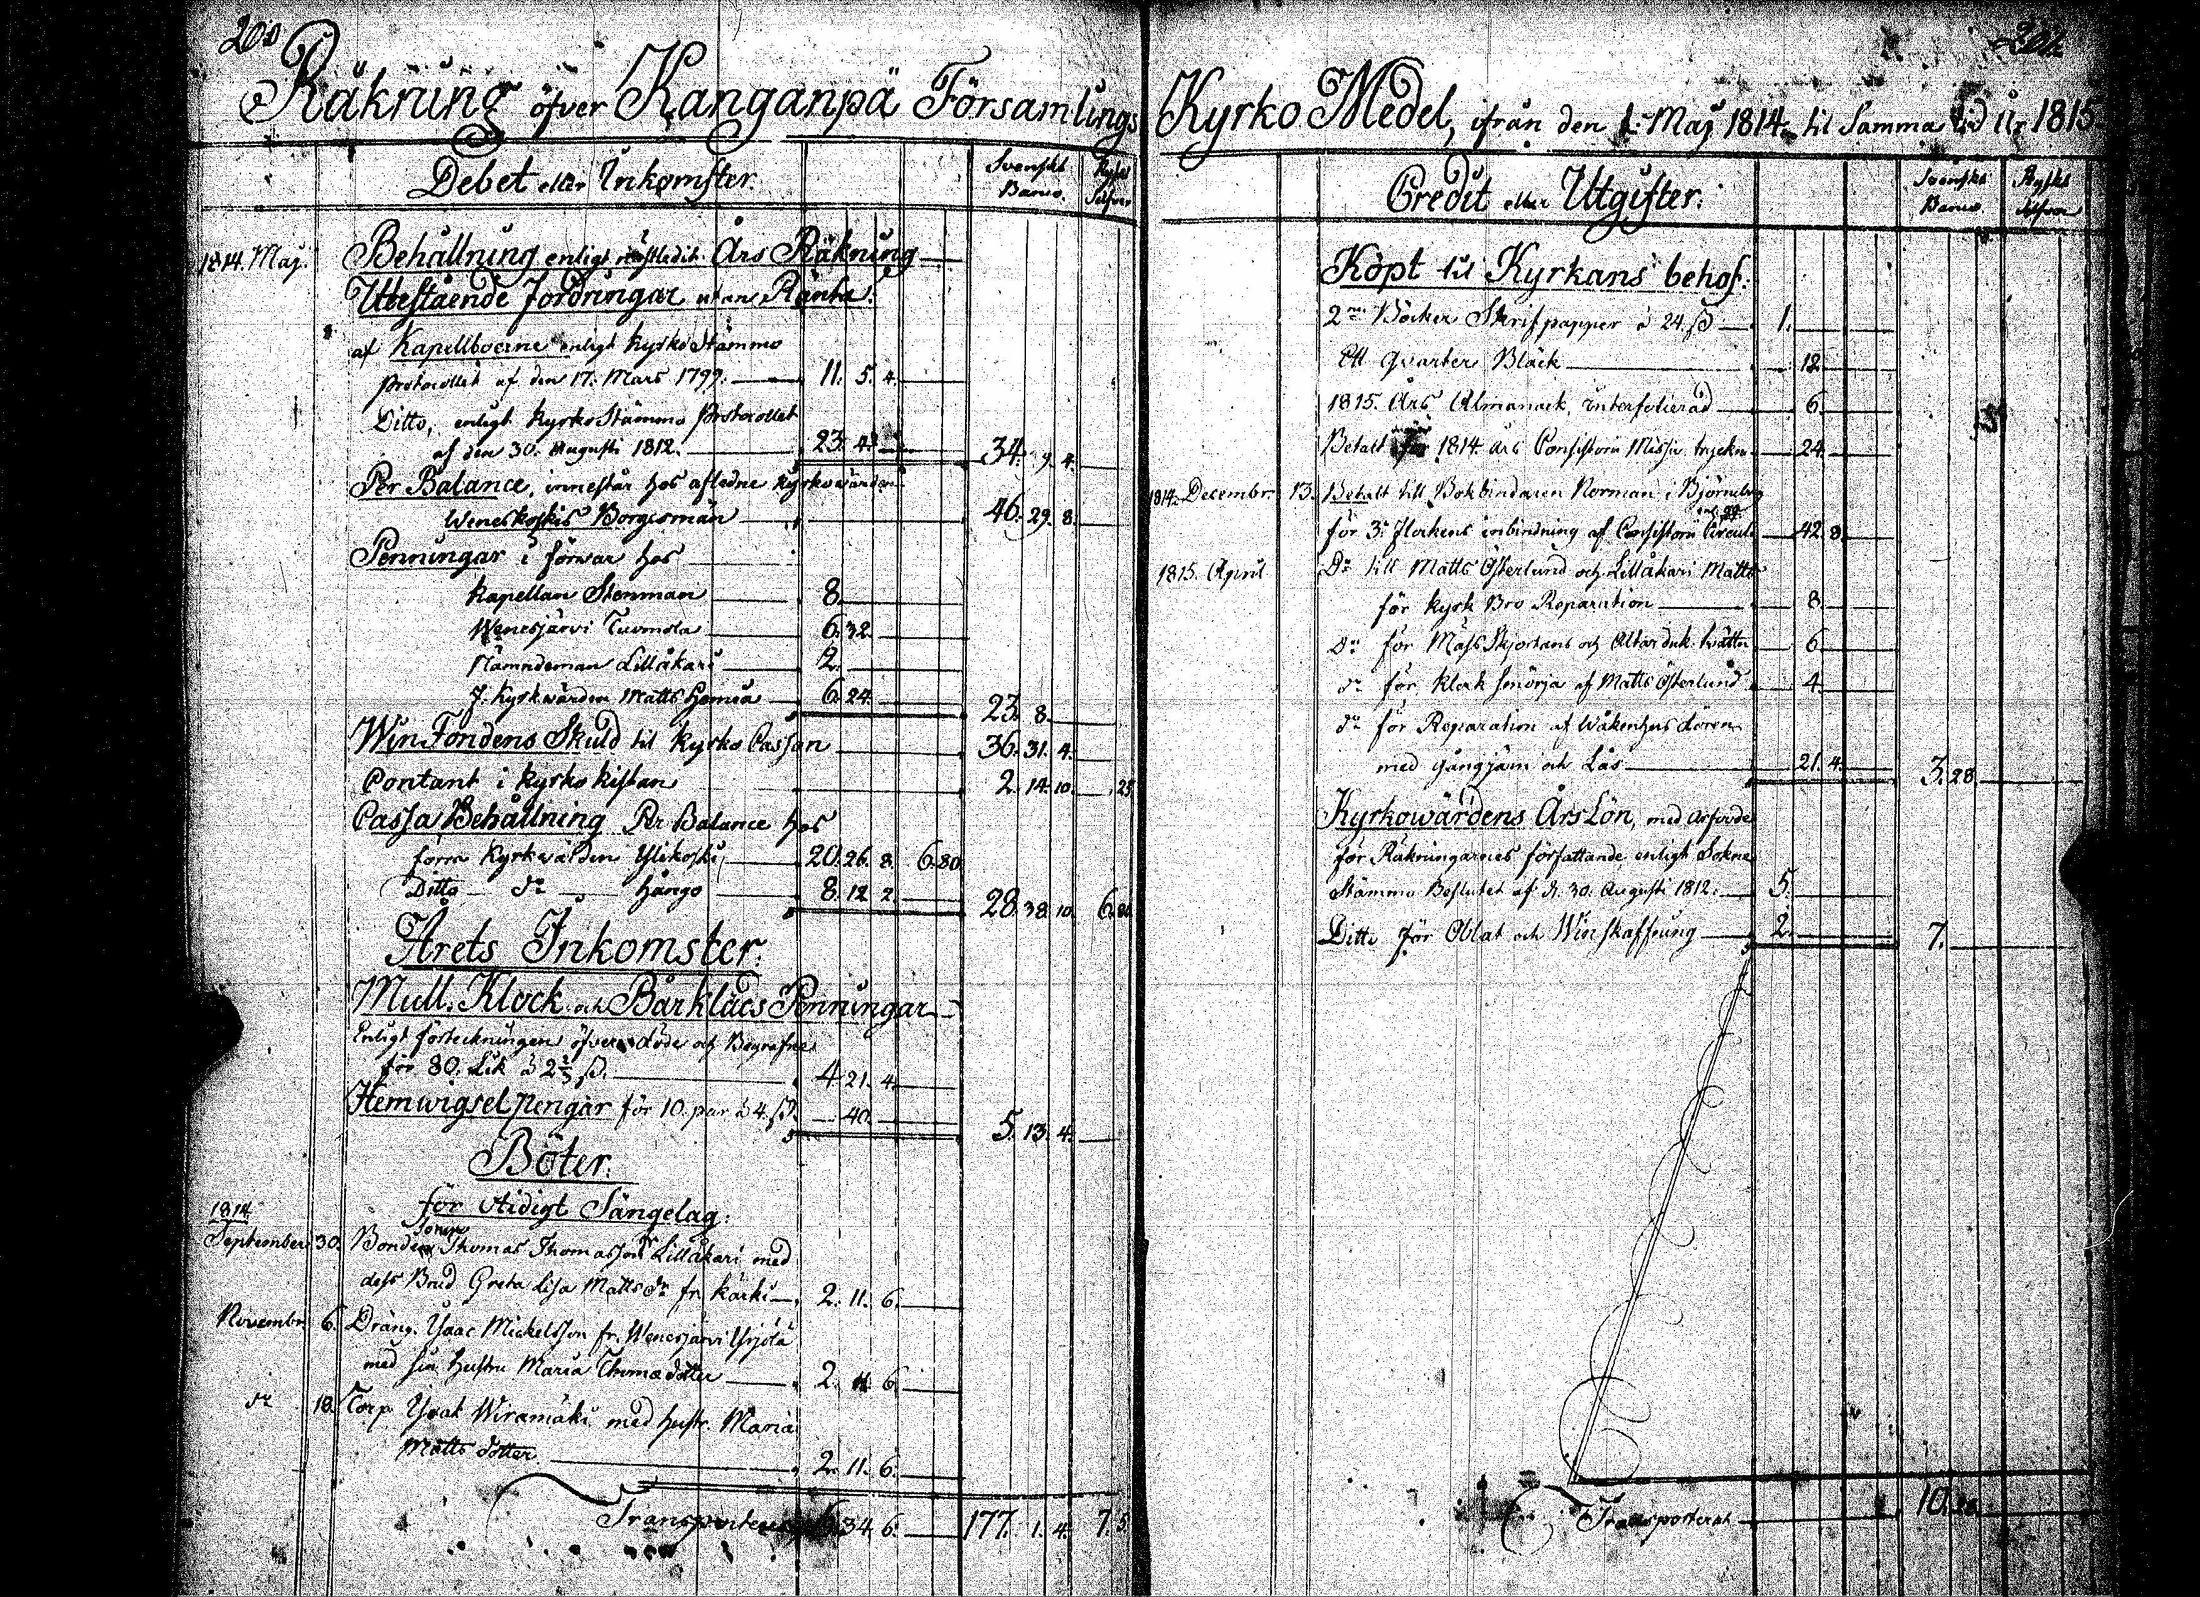 200
Räkning öfver Kanganpä Församlings
Debet eller Inkomster.
Svenskt Banco.
Ryskt Silfver
1814. Maj. Behållning enligt nästledit. Års Räkning
Utestående Fordringar utan Ränta.
af Kapellboerne enligt Kyrko Stämmo
protocollet af den 17. Mars 1799. 11. 5. 4.
Ditto, enligt Kyrko Stämmo Protocollet
af den 30. Augusti 1812. 23. 4. 34. 9. 4.
Per Balance, innestår hos afledne Kyrkowärden
Weneskoskis Borgesmän 46. 29. 8.
Penningar i förwar hos
Kapellan Stenman 8.
Wenesjärvi Tuomola 6. 32.
Nämndeman Lillåkari 2.
f. Kyrkwärden Matts 6. 24. 23. 8.
Win Fondens Skuld til Kyrko Cassan 36. 31. 4.
Contant i Kyrko kistan 2. 14. 10. 25
Cassa Behållning Per Balance hos
förra Kyrkwärden Ylikoski 20. 26. 8. 6. 80
Ditto do Hångo 8. 12. 2. 28. 38. 10. 6. 80
Årets Inkomster:
Mull. Klock och Bårkläds Penningar
Enligt förteckningen öfver döde och Begrafne
för 80. Lik à 2 2/3 ß. 4. 21. 4.
Hemwigsel pengar för 10. par à 4. ß. 40. 5. 13. 4.
Böter.
för otidigt Sängelag:
1814
September 30. Bonde Sonen Thomas Thomasson Lillåkari med
dess Brud Greta Lisa Matts dr fr. Karki 2. 11. 6.
Novembr. 6. Dräng. Isaac Mickelsson fr. Wenesjärvi Yrjölä
med sin Hustru Maria Thomædotter 2. 11. 6.
do 18. Torp. Isaak Wiramäki med hustr. Maria
Matts dotter 2. 11. 6.
Transporteras 6. 34. 6. 177. 1. 4. 7. 5.
201.
Kyrko Medel, ifrån den 1. Maj 1814 til Samma tid år 1815
Credit eller Utgifter.
Svenskt Banco.
Ryskt Silfver
Köpt til Kyrkans behof:
2ne Böcker Skrifpapper à 24. ß 1.
Ett Qvarter Bläck 12.
1815. Års Almanack, interfolierad 6.
Betalt för 1814 års Consistorii Missiv tryckn. 24.
1814. Decembr. 13. Betalt till Bokbindaren Norman i Björneborg
för 3. flockens inbindning af Consistorii Circul. 42. 8.
1815. April Do till Matts Österlund och Lillåkari Matts
för Kyrk Bro Reparation 8.
Do för Mäss Skjortans och Altarduk. twätt 6.
do för Klock smörja af Matts Österlund 4.
do för Reparation af Wåkenhus dören
med gångjärn och Lås 21. 4. 3. 28.
Kyrkowärdens Års Lön, med arfvode
för Räkningarnes författande enligt Sokne
Stämmo Beslutet af d. 30. Augusti 1812. 5.
Ditto för Oblat och Winskaffning 2. 7.
Transporterat 10. 28.